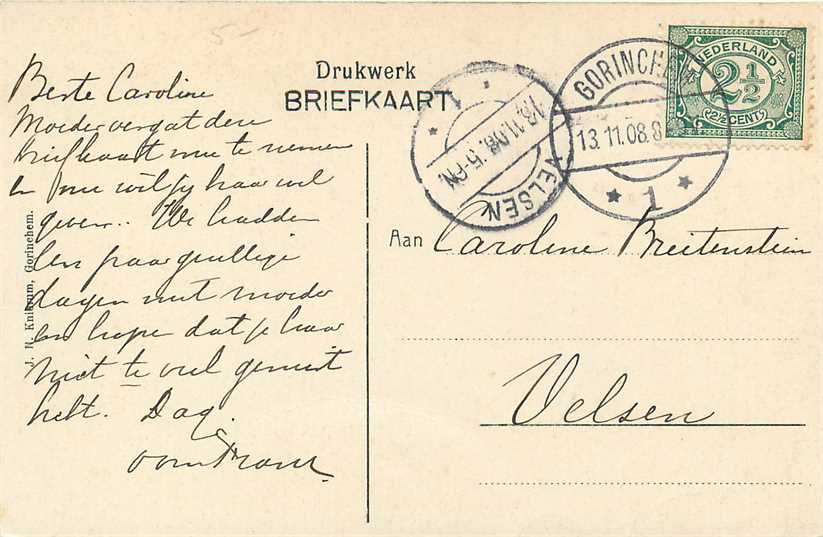 5-
Drukwerk
BRIEFKAART
GORINCHEM
13.11.08.8
1
VELSEN
13.11.08. 5-6N.
NEDERLAND
2½
2½ CENTS
Beste Caroline
Moeder vergat deze
briefkaart mee te nemen
en nu wil jij haar wel
geven. We hadden
een paar gezellige
dagen met moeder
en hopen dat je haar
niet te veel gemist
hebt. Dag.
oom
J. H. Knierum, Gorinchem.
Aan Caroline Breitenstein
Velsen